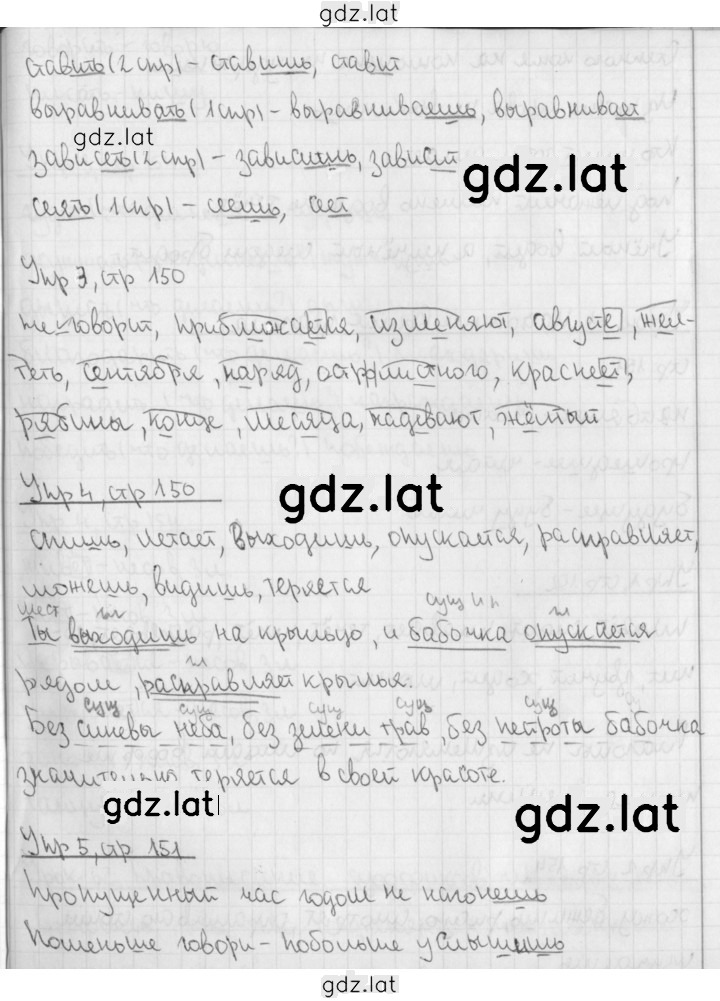 gdz.lat
ставить (2 спр) - ставишь, ставит
выравнивать (1 спр) - выравниваешь, выравнивает
gdz.lat
зависеть (2 спр) - зависишь, зависит
gdz.lat
сеять (1 спр) - сеешь, сеет
Упр 3, стр 150
не говорит, приближается, изменяют, августе, жел-
теть, сентября, наряд, остролистного, краснеет,
рябины, конце, месяца, надевают, жёлтый
Упр 4, стр 150
gdz.lat
спишь, летает, выходишь, опускается, расправляет,
можешь, видишь, теряется
мест гл сущ и.п гл
Ты выходишь на крыльцо, и бабочка опускается
гл
рядом, расправляет крылья.
сущ сущ сущ сущ сущ
Без синевы неба, без зелени трав, без пестроты бабочка
значительно теряется в своей красоте.
gdz.lat
gdz.lat
Упр 5, стр 151
Пропущенный час годом не нагонешь
Поменьше говори - побольше услышишь
gdz.lat